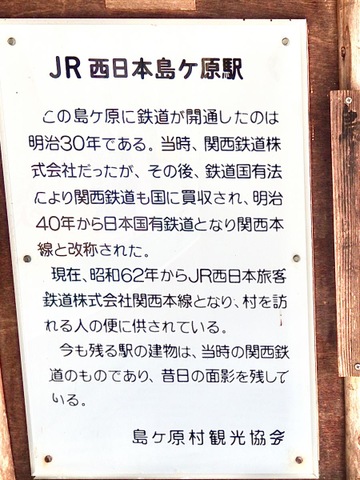 JR西日本島ケ原駅
この島ケ原に鉄道が開通したのは
明治30年である。当時、関西鉄道株
式会社だったが、その後、鉄道国有法
により関西鉄道も国に買収され、明治
40年から日本国有鉄道となり関西本
線と改称された。
現在、昭和62年からJR西日本旅客
鉄道株式会社関西本線となり、村を訪
れる人の便に供されている。
今も残る駅の建物は、当時の関西鉄
道のものであり、昔日の面影を残して
いる。
島ケ原村観光協会